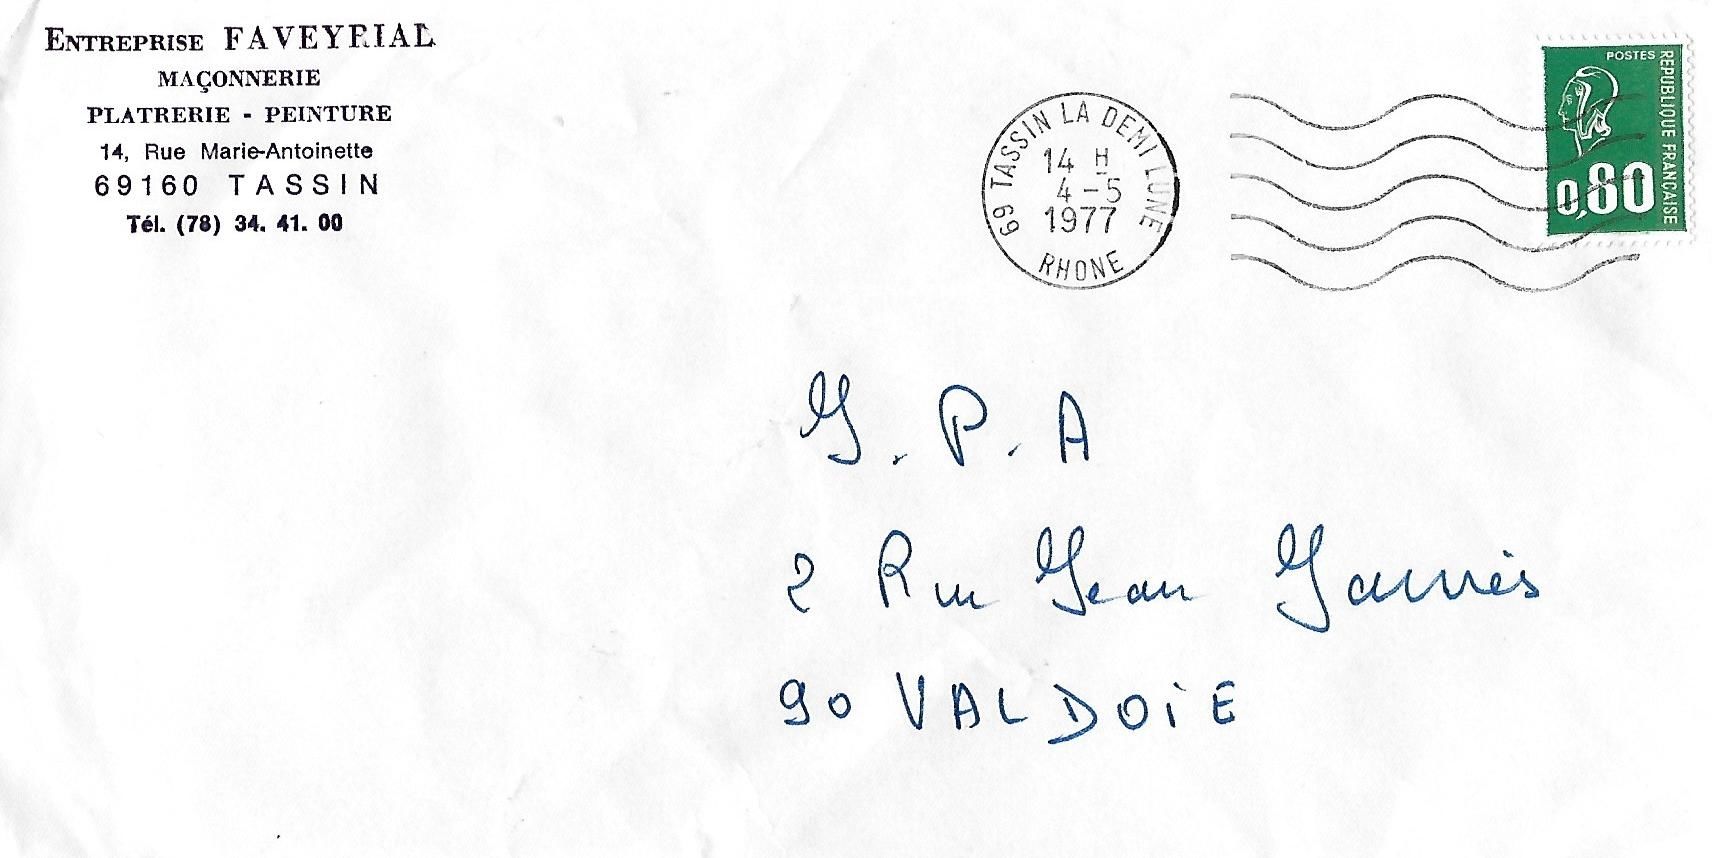 ENTREPRISE FAVEYRIAL
MAÇONNERIE
PLATRERIE - PEINTURE
14, Rue Marie-Antoinette
69160 TASSIN
Tél. (78) 34. 41. 00
69 TASSIN LA DEMI LUNE
14 H
4-5
1977
RHONE
POSTES
REPUBLIQUE FRANÇAISE
0,80
G. P. A
2 Rue Jean Jaurès
90 VALDOiE